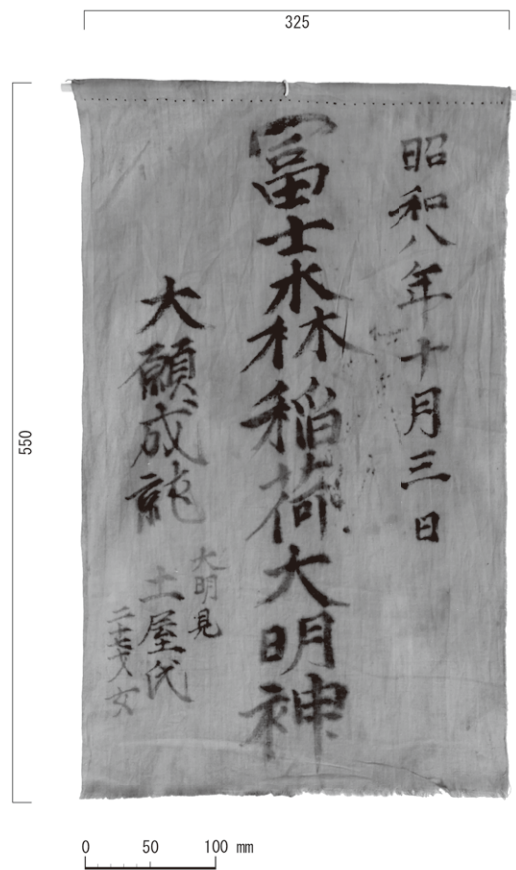 325
550
昭和八年十月三日
冨士森稲荷大明神
大願成就
大明見
土屋氏
二十七才女
0 50 100 mm